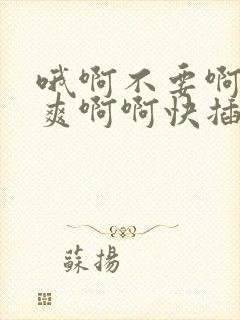 哦啊不要啊
爽啊啊快插
蘇揚